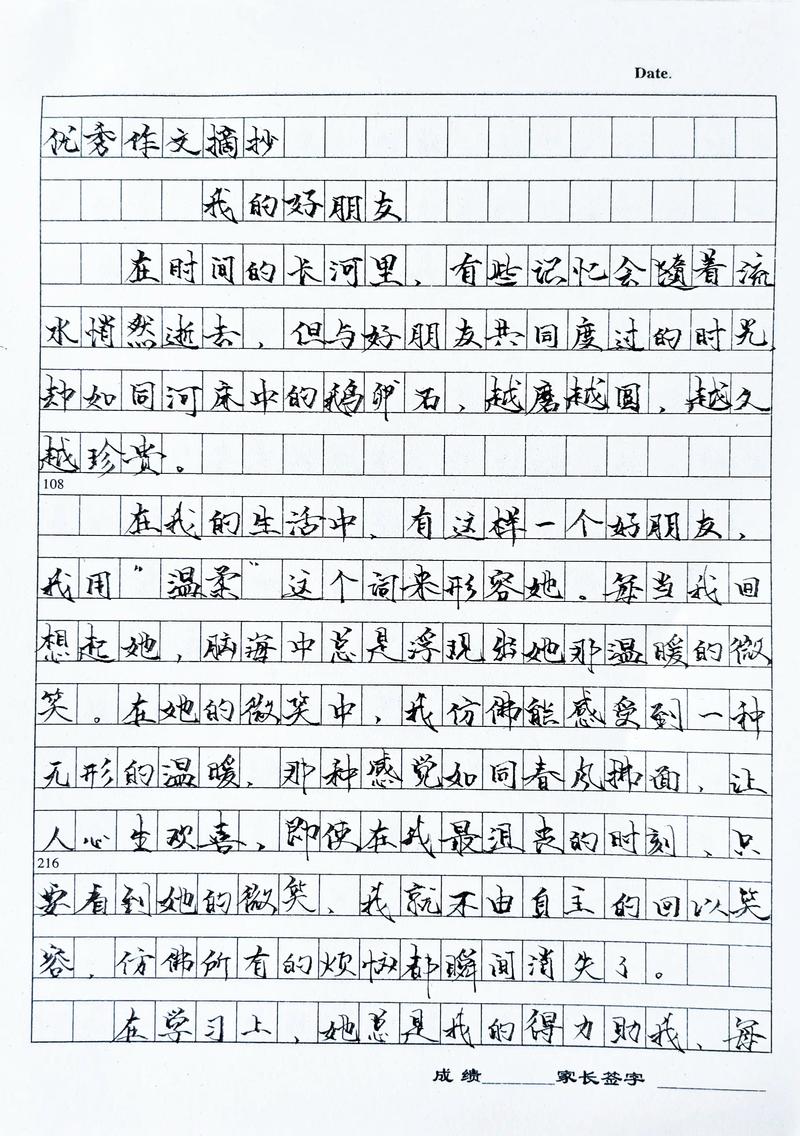 Date.
优秀作文摘抄
我的好朋友
在时间的长河里，有些记忆会随着流
水悄然逝去，但与好朋友共同度过的时光，
却如同河床中的鹅卵石，越磨越圆，越久
越珍贵。
108
在我的生活中，有这样一个好朋友，
我用“温柔”这个词来形容她。每当我回
想起她，脑海中总是浮现出她那温暖的微
笑。在她的微笑中，我仿佛能感受到一种
无形的温暖，那种感觉如同春风拂面，让
人心生欢喜，即使在我最沮丧的时刻，只
216
要看到她的微笑，我就不由自主的回以笑
容，仿佛所有的烦恼都瞬间消失了。
在学习上，她总是我的得力助我，每
成绩 家长签字